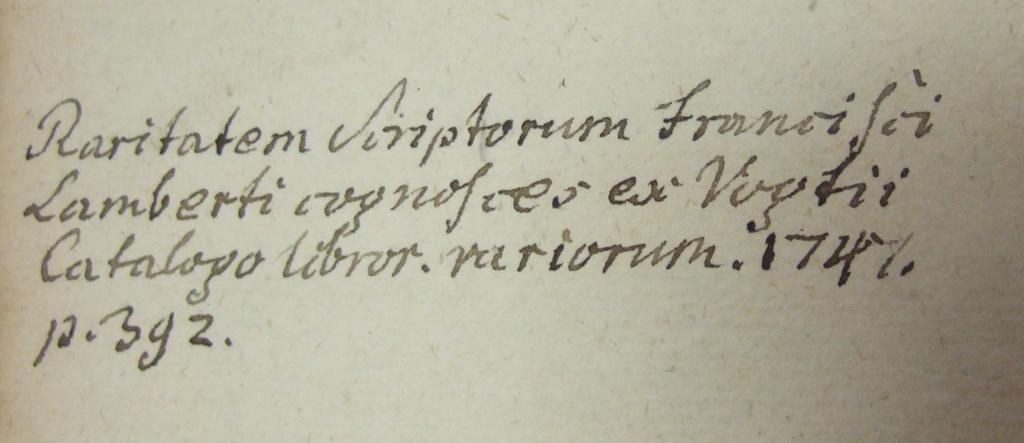 Raritatem Scriptorum Francisci
Lamberti cognosces ex Vogtii
Catalogo libror. rariorum. 1747.
p. 392.